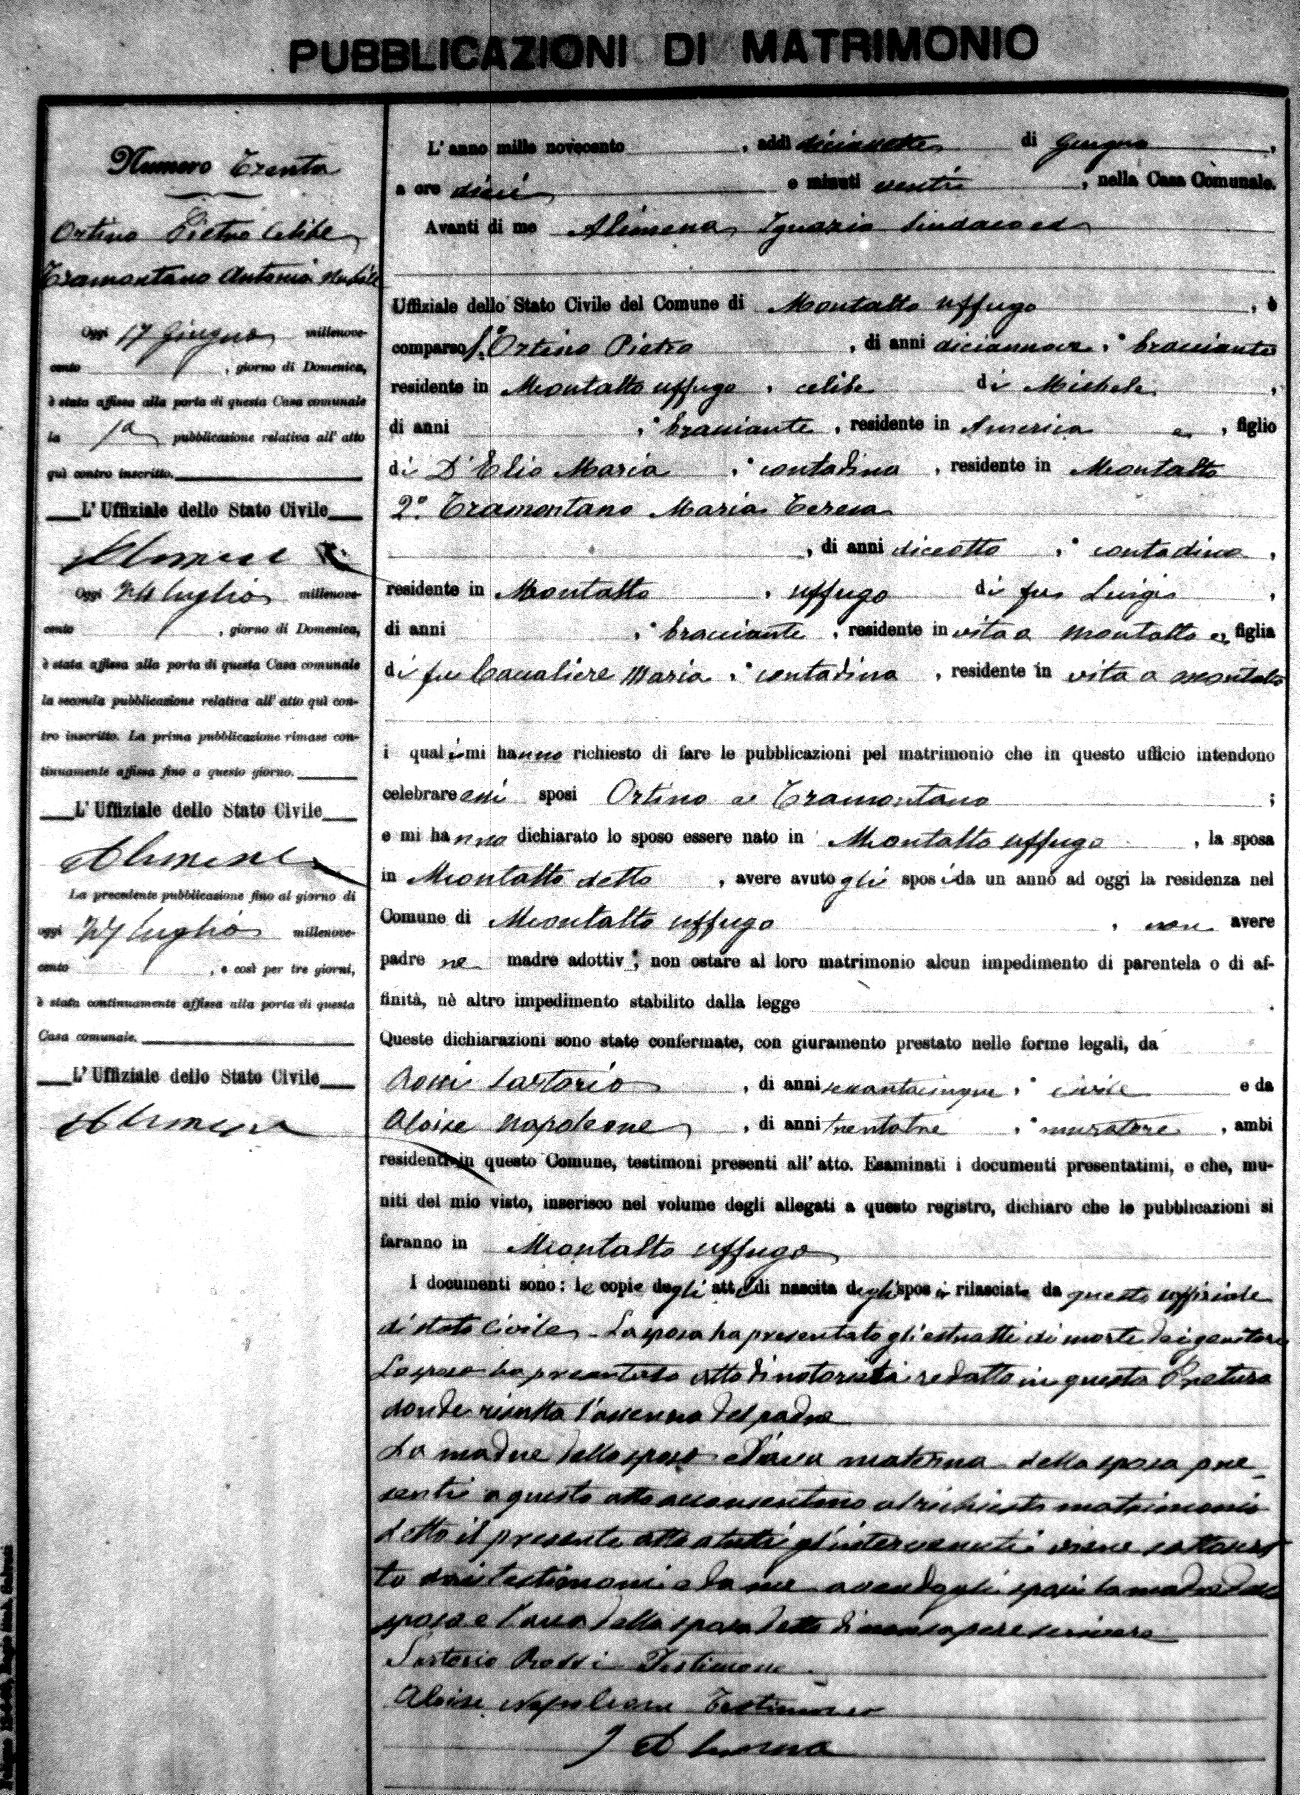 PUBBLICAZIONI DI MATRIMONIO
Numero Trenta
Ortino Pietro celibe
Tramontano Antonia nubile
Oggi 17 Giugno millenove-
cento , giorno di Domenica,
è stata affissa alla porta di questa Casa comunale
la 1a pubblicazione relativa all' atto
quì contro inscritto.
L' Uffiziale dello Stato Civile
Oggi 24 luglio millenove-
cento , giorno di Domenica,
è stata affissa alla porta di questa Casa comunale
la seconda pubblicazione relativa all' atto quì con-
tro inscritto. La prima pubblicazione rimase con-
tinuamente affissa fino a questo giorno.
L' Uffiziale dello Stato Civile
La precedente pubblicazione fino al giorno di
oggi 27 luglio millenove-
cento , e così per tre giorni,
è stata continuamente affissa alla porta di questa
Casa comunale.
L' Uffiziale dello Stato Civile
L' anno mille novecento , addì diciassette di Giugno ,
a ore dieci e minuti venti , nella Casa Comunale.
Avanti di me Alimena Ignazio Sindaco ed
Uffiziale dello Stato Civile del Comune di Montalto Uffugo , è
comparso 1.° Ortino Pietro , di anni diciannove , bracciante
residente in Montalto uffugo , celibe di Michele ,
di anni , bracciante , residente in America e , figlio
di D'Elia Maria , contadina , residente in Montalto
2.° Tramontano Maria Teresa
, di anni diceotto , contadina ,
residente in Montalto , uffugo di fu Luigi ,
di anni , bracciante , residente in vita a Montalto e , figlia
di fu Cavaliere Maria , contadina , residente in vita a Montalto
i quali mi hanno richiesto di fare le pubblicazioni pel matrimonio che in questo ufficio intendono
celebrare essi sposi Ortino e Tramontano ;
e mi hanno dichiarato lo sposo essere nato in Montalto uffugo , la sposa
in Montalto detto , avere avuto gli sposi da un anno ad oggi la residenza nel
Comune di Montalto uffugo , non avere
padre ne madre adottiv ; non ostare al loro matrimonio alcun impedimento di parentela o di af-
finità, nè altro impedimento stabilito dalla legge .
Queste dichiarazioni sono state confermate, con giuramento prestato nelle forme legali, da
Rossi Sartorio , di anni sessantacinque , civile e da
Aloise Napoleone , di anni trentatre , muratore , ambi
residenti in questo Comune, testimoni presenti all' atto. Esaminati i documenti presentatimi, e che, mu-
niti del mio visto, inserisco nel volume degli allegati a questo registro, dichiaro che le pubblicazioni si
faranno in Montalto uffugo
I documenti sono: le copie degli atti di nascita degli sposi rilasciate da questo uffiziale
di stato Civile. La sposa ha presentato gli estratti di morte dei genitori
Lo sposo ha presentato atto di notorietà redatto in questa Pretura
donde risulta l'assenza del padre
La madre dello sposo e l'ava materna della sposa pre-
senti a questo atto acconsentono al richiesto matrimonio
Letto il presente atto a tutti gl'intervenuti viene sottoscrit
to dai testimoni e da me avendo gli sposi la madre dello
sposo e l'ava della sposa detto di non sapere scrivere
Sartorio Rossi Testimone
Aloise Napoleone Testimone
I Alimena